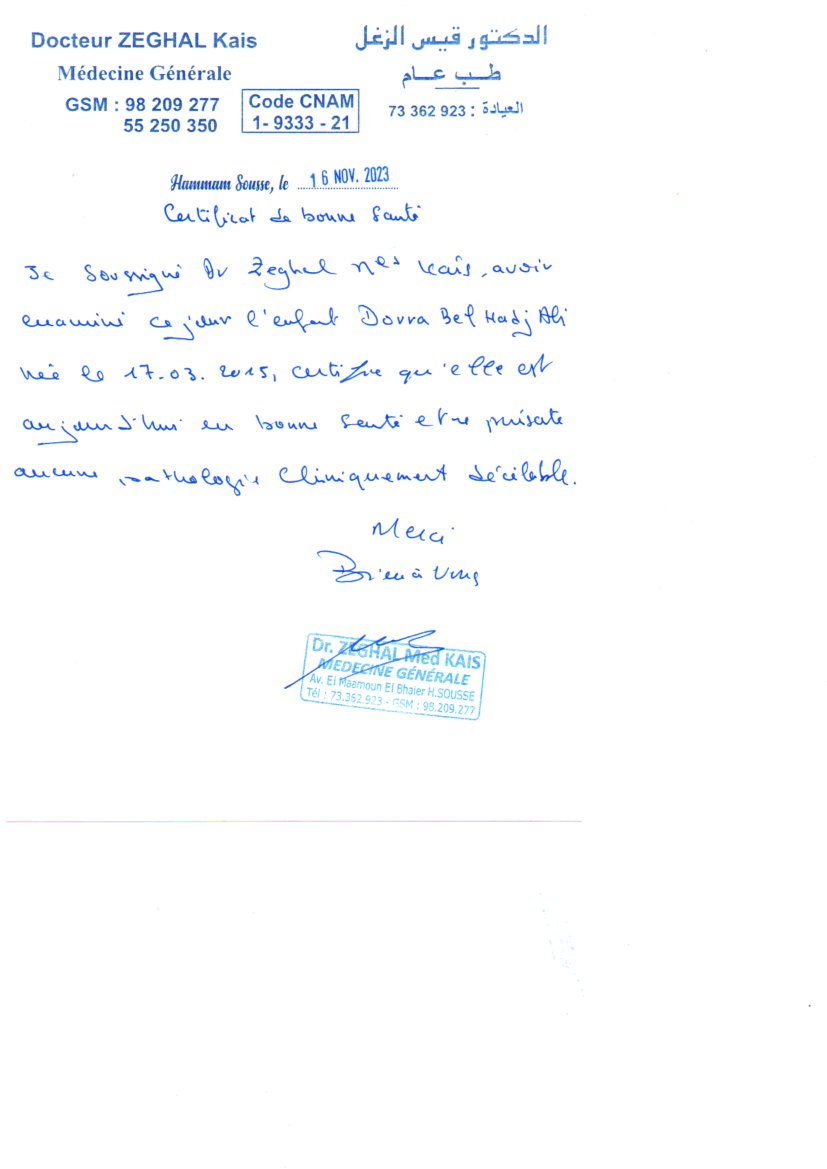 Docteur ZEGHAL Kais
Médecine Générale
GSM : 98 209 277
55 250 350
Code CNAM
1- 9333 - 21
الدكتور قيس الزغل
طب عام
العيادة : 73 362 923
Hammam Sousse, le 16 NOV. 2023
Certificat de bonne santé
Je soussigné Dr Zeghal Med Kaïs, avoir
examiné ce jour l'enfant Dorra Bel Hadj Ali
née le 17.03.2015, certifie qu'elle est
aujourd'hui en bonne santé et ne présente
aucune pathologie cliniquement décelable.
Merci
Bien à vous
Dr. ZEGHAL Med KAIS
MEDECINE GÉNÉRALE
Av. El Maamoun El Bhaier H.SOUSSE
Tél : 73.362.923 - GSM : 98.209.277